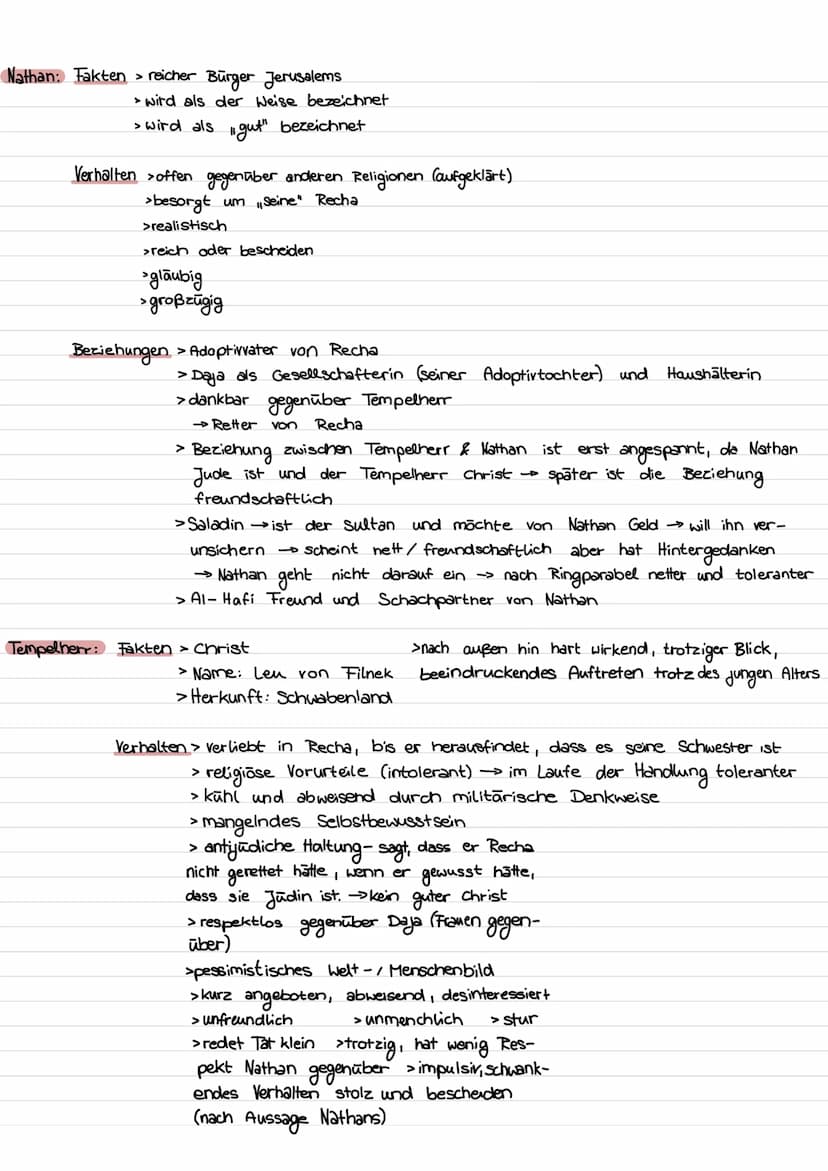 Nathan: Fakten > reicher Bürger Jerusalems
> wird als der Weise bezeichnet
> wird als „gut" bezeichnet
Verhalten > offen gegenüber anderen Religionen (aufgeklärt)
> besorgt um „seine" Recha
> realistisch
> reich oder bescheiden
> gläubig
> großzügig
Beziehungen > Adoptivvater von Recha
> Daja als Gesellschafterin (seiner Adoptivtochter) und Haushälterin
> dankbar gegenüber Tempelherr
→ Retter von Recha
> Beziehung zwischen Tempelherr & Nathan ist erst angespannt, da Nathan
Jude ist und der Tempelherr Christ → später ist die Beziehung
freundschaftlich
> Saladin → ist der Sultan und möchte von Nathan Geld → will ihn ver-
unsichern → scheint nett / freundschaftlich aber hat Hintergedanken
→ Nathan geht nicht darauf ein → nach Ringparabel netter und toleranter
> Al-Hafi Freund und Schachpartner von Nathan
Tempelherr: Fakten > Christ >nach außen hin hart wirkend, trotziger Blick,
> Name: Leu von Filnek beeindruckendes Auftreten trotz des jungen Alters
> Herkunft: Schwabenland
Verhalten > verliebt in Recha, bis er herausfindet, dass es seine Schwester ist
> religiöse Vorurteile (intolerant) → im Laufe der Handlung toleranter
> kühl und abweisend durch militärische Denkweise
> mangelndes Selbstbewusstsein
> antijüdiche Haltung - sagt, dass er Recha
nicht gerettet hätte, wenn er gewusst hätte,
dass sie Jüdin ist. → kein guter Christ
> respektlos gegenüber Daja (Frauen gegen-
über)
> pessimistisches Welt-/Menschenbild
> kurz angeboten, abweisend, desinteressiert
> unfreundlich > unmenchlich > stur
> redet Tat klein > trotzig, hat wenig Res-
pekt Nathan gegenüber > impulsiv, schwank-
endes Verhalten stolz und bescheiden
(nach Aussage Nathans)